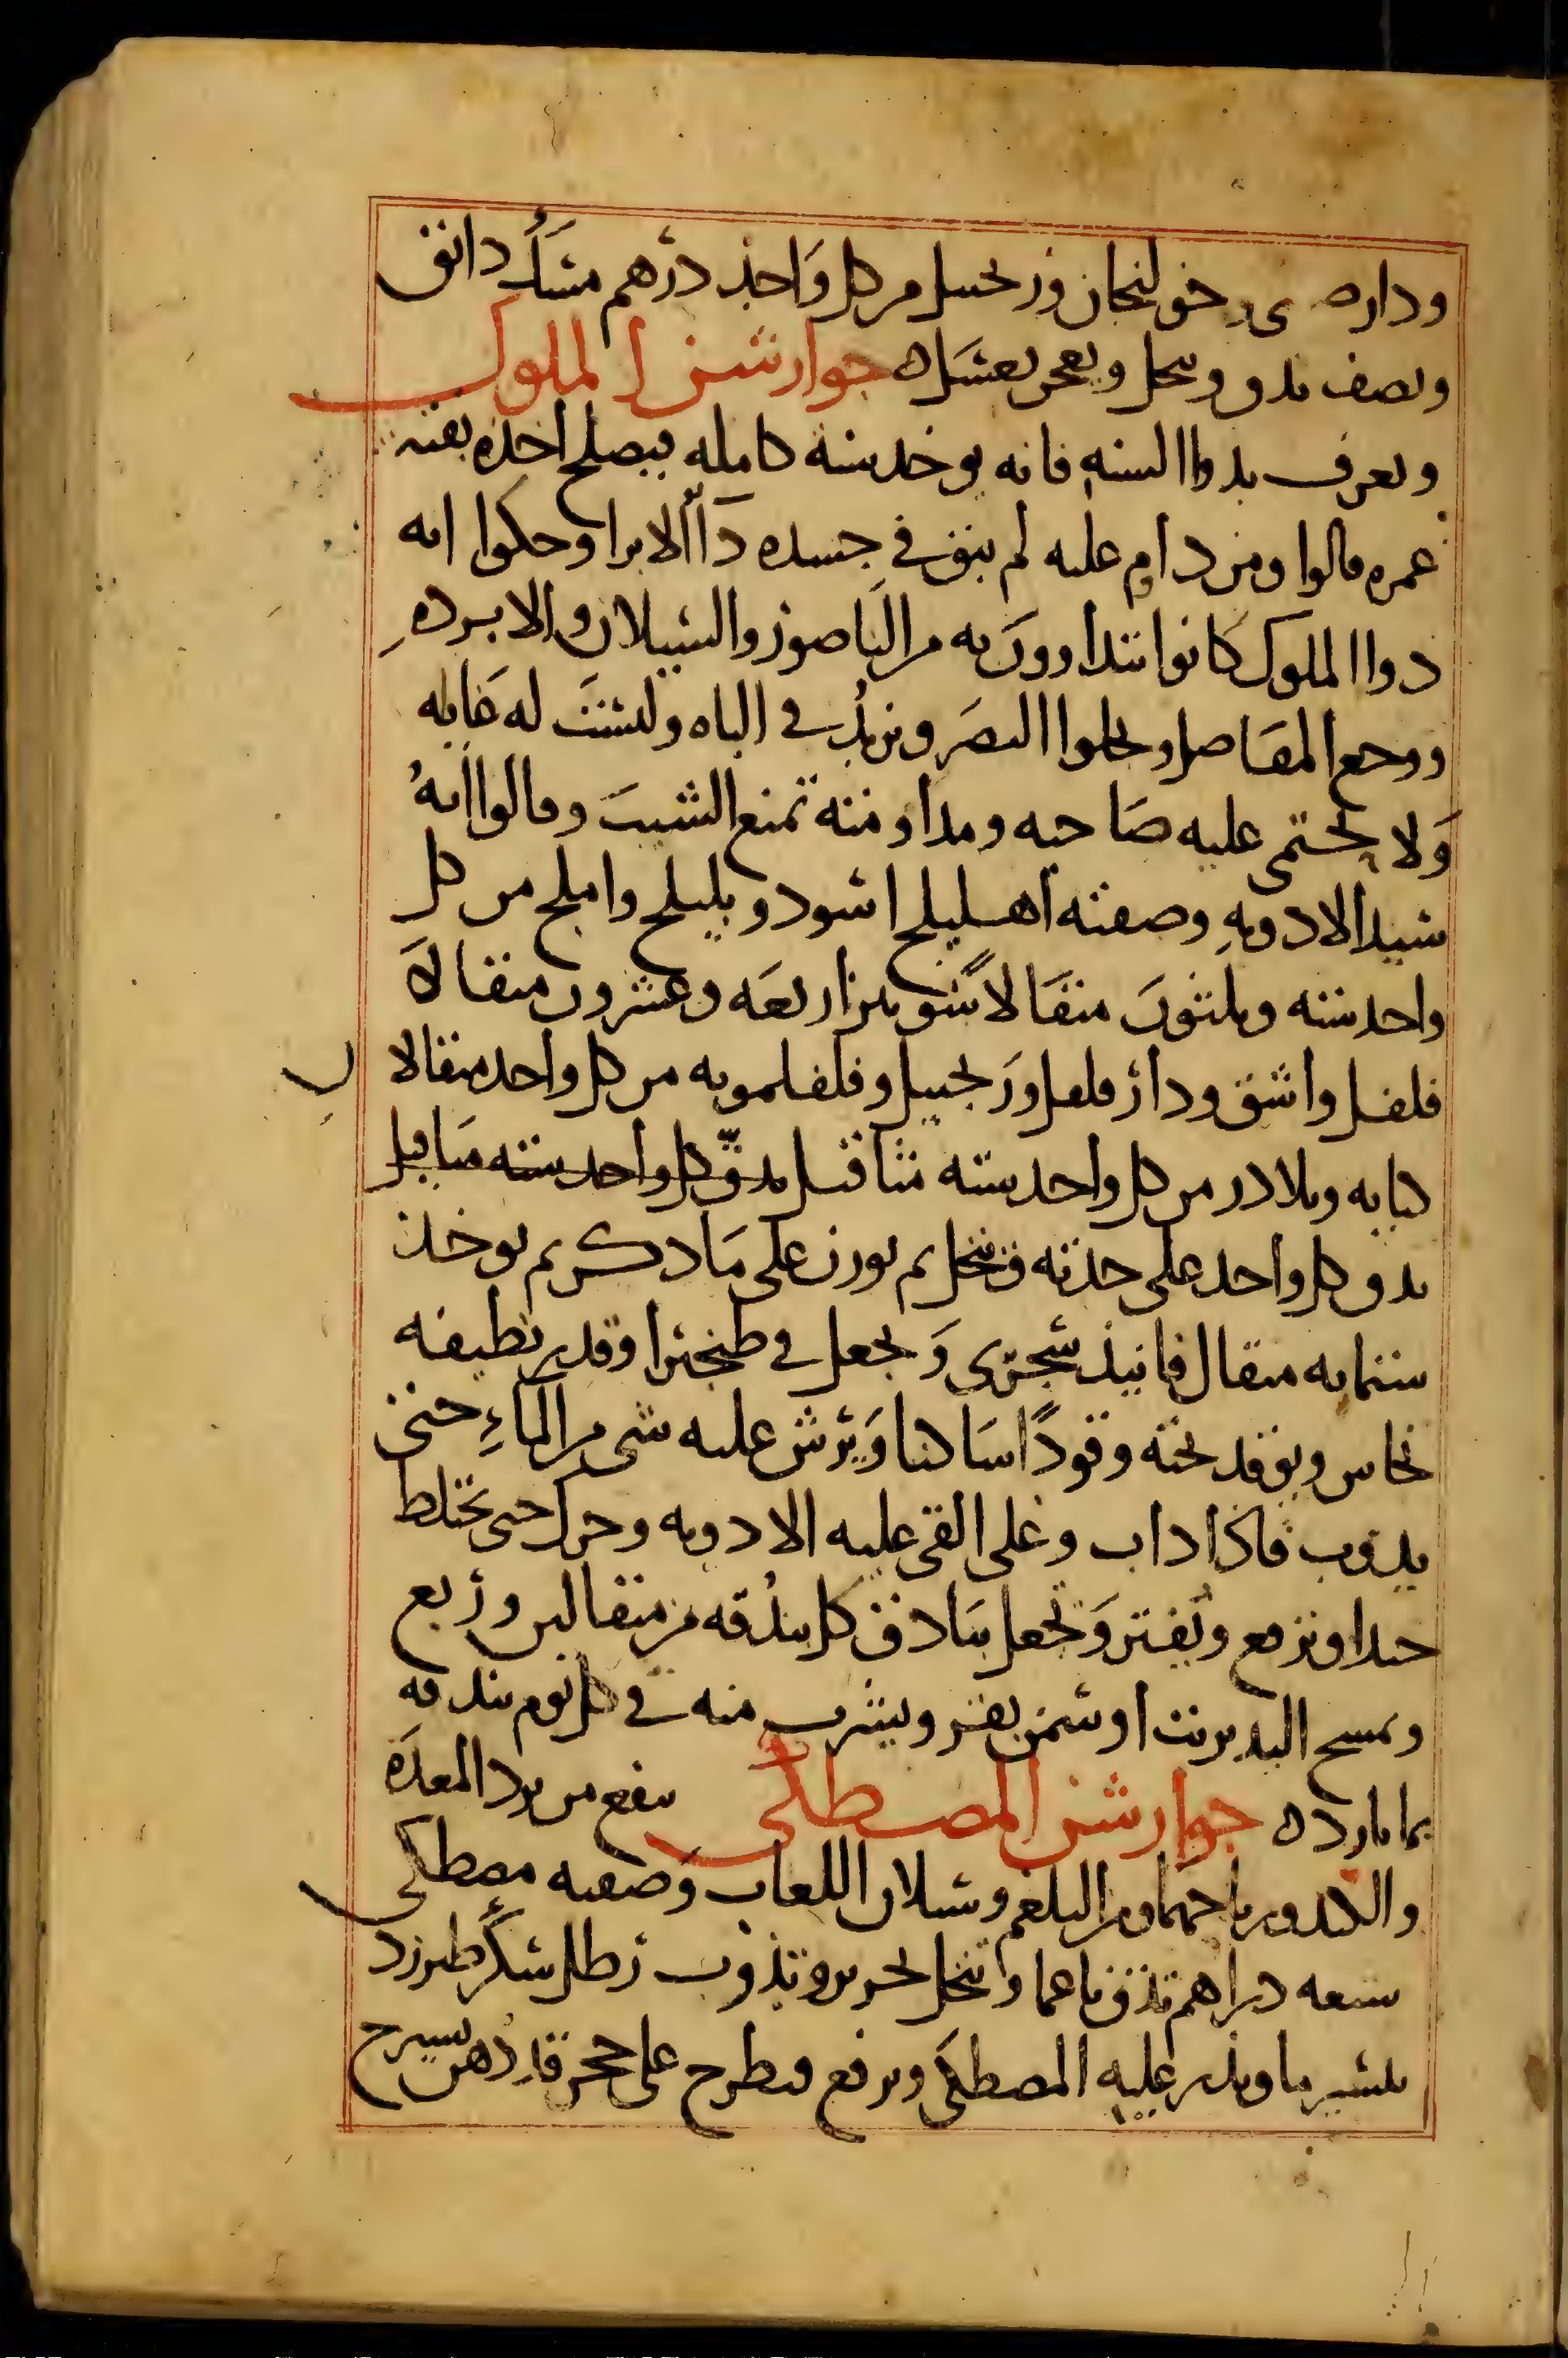 ودارصيني وخولنجان وزنجبيل من كل واحد درهم مسك دانق
ونصف يدق وينخل ويعجن بعسل ه جوارشن الملوك
ويعرف بدوا السنه فانه يوخذ سنة كامله فيصلح اخذه بقية
عمره قالوا ومن دام عليه لم يبق في جسده داأ الا برا وحكوا انه
دوا الملوك كانوا يتداوون به من الباصور والسيلان والابرده
ووجع المفاصل ويجلوا البصر ويزيد في الباه وليست له غايله
ولا يحتمي عليه صاحبه ومداومته تمنع الشيب وقالوا انه
سيد الادويه وصفته اهليلج اسود وبليلج واملج من كل
واحد ستة وثلثون مثقالا شونيز اربعه وعشرون مثقالا
فلفل واشق ودارفلفل وزنجبيل وفلفلمويه من كل واحد مثقالا
كبابه وبلادر من كل واحد ستة مثاقيل يدق كل واحد ستة مثاقيل
يدق كل واحد على حدته وينخل ثم يوزن على ما ذكر ثم يوخذ
ستمايه مثقال فانيذ شجري ويجعل في طنجير او قدر نظيفه
نحاس ويوقد تحته وقودا ساكنا ويرش عليه شي من الماء حتى
يذوب فاذا ذاب وغلى القي عليه الادويه وحرك حتى تختلط
جيدا ويرفع ويفتر وتجعل بنادق كل بندقه من مثقالين وربع
ويمسح اليد بزيت او سمن بقر ويشرب منه في كل يوم بندقه
بما بارد ه جوارشن المصطكى ينفع من برد المعده
والكبد ويرباحهما ومن البلغم وسيلان اللعاب وصفته مصطكى
سبعه دراهم تدق ناعما وتنخل بحرير وتذوب رطل سكر طبرزد
بيسير ما ويذر عليه المصطكى ويرفع ويطرح على حجر قد دهن بسيرج